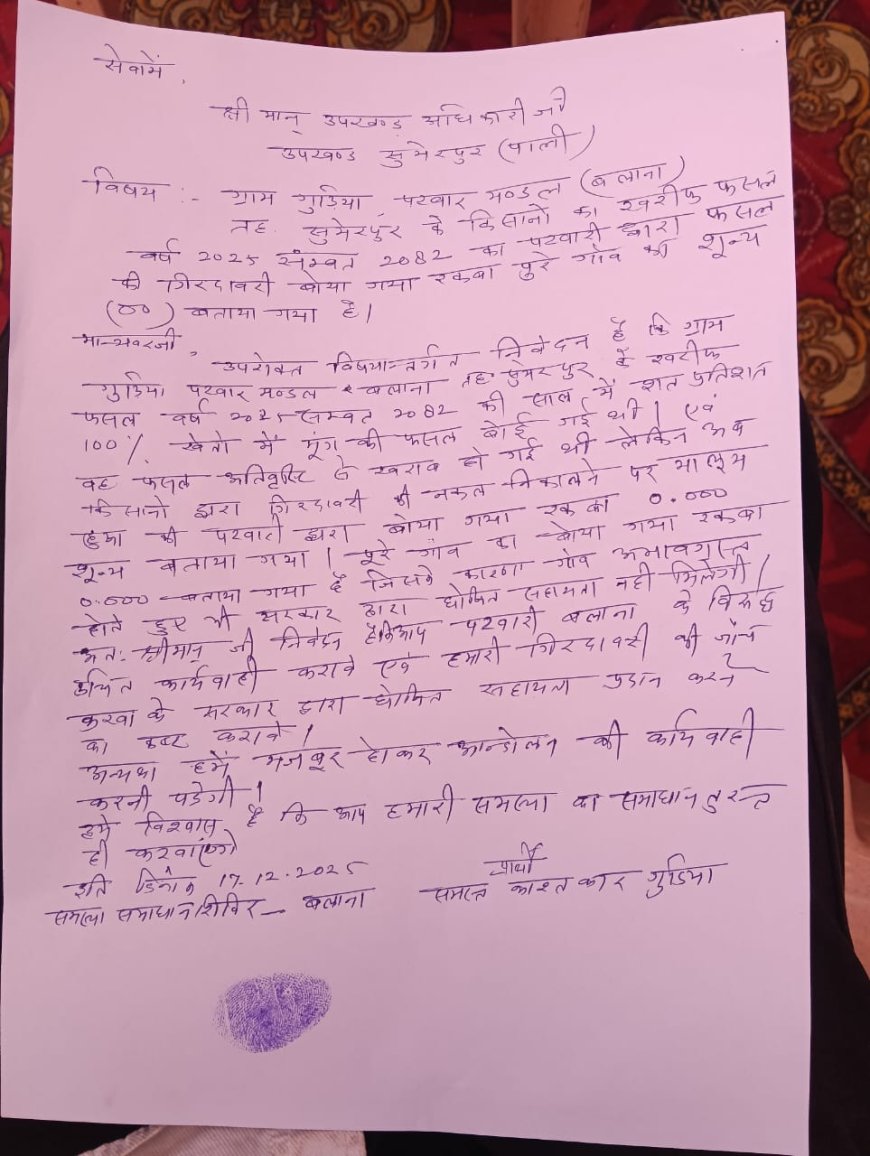 सेवामें,
श्री मान् उपखण्ड अधिकारी जी
उपखण्ड सुमेरपुर (पाली)
विषय :- ग्राम गुडिया, पटवार मण्डल (बलाना)
तह. सुमेरपुर के किसानो का खरीफ फसल
वर्ष 2025 संम्वत 2082 का पटवारी द्वारा फसल
की गिरदावरी बोया गया रकबा पुरे गाँव की शून्य
(00) बताया गया है।
मान्यवरजी,
उपरोक्त विषयान्तर्गत निवेदन है कि ग्राम
गुडिया पटवार मण्डल बलाना तह. सुमेरपुर के खरीफ
फसल वर्ष 2025 सम्वत 2082 की साल में शत प्रतिशत
100% खेतो में मूंग की फसल बोई गई थी। एवं
वह फसल अतिवृष्टि से खराब हो गई थी लेकिन अब
किसानो द्वारा गिरदावरी की नकल निकालने पर मालूम
हुआ की पटवारी द्वारा बोया गया रकबा 0.000
शून्य बताया गया। पूरे गाँव का बोया गया रकबा
0.000 बताया गया है जिसके कारण गाँव अभावग्रस्त
होते हुए भी सरकार द्वारा घोषित सहायता नही मिलेगी।
अतः श्रीमान् जी निवेदन है कि आप पटवारी बलाना के विरुद्ध
उचित कार्यवाही करावे एवं हमारी गिरदावरी की जाँच
करवा के सरकार द्वारा घोषित सहायता प्रदान करने
का कष्ट करावे।
अन्यथा हमें मजबूर होकर आन्दोलन की कार्यवाही
करनी पडेगी।
हमे विश्वास है कि आप हमारी समस्या का समाधान तुरन्त
ही करवाएंगे
इति दिनांक 17.12.2025
प्रार्थी
समस्या समाधान शिविर - बलाना
समस्त काश्तकार गुडिया